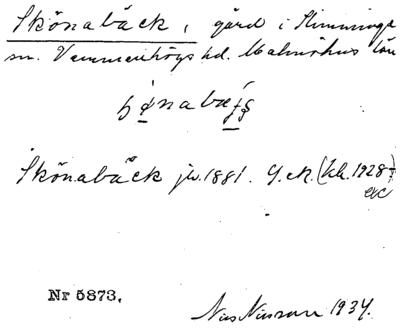 Skönabäck, gård i Slimminge
sn. Vemmenhögs hd. Malmöhus län
Skönabäck jw. 1881. G.ek. (kh. 1928
etc
Nr 5873. Nils Nilsson 1934.